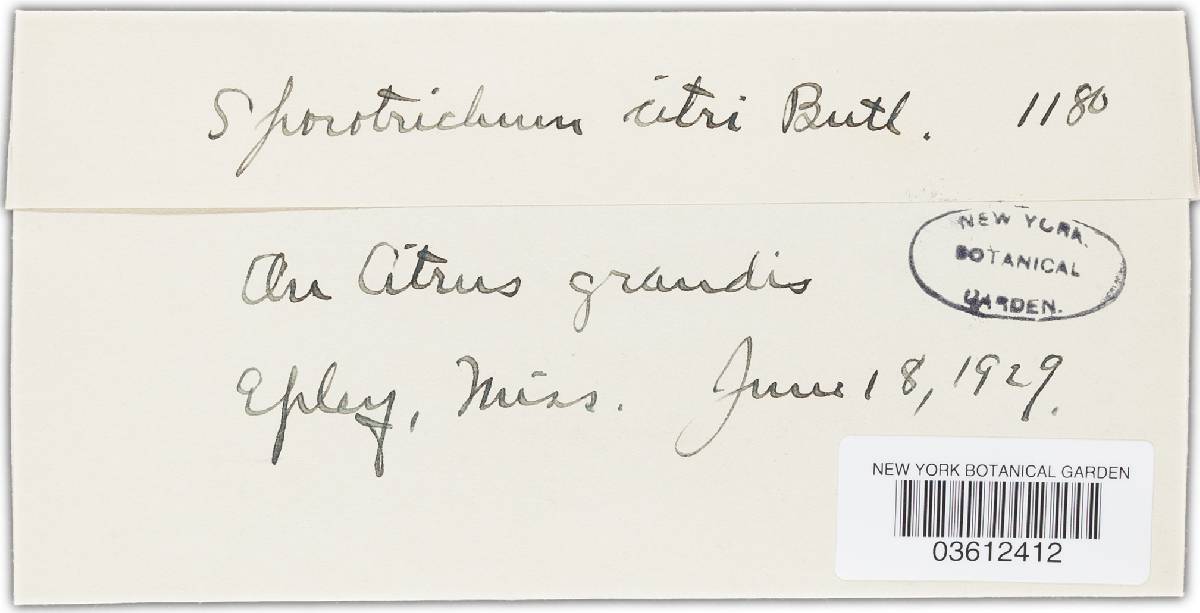 Sporotrichum citri Butl. 1180
On Citrus grandis
Epley, Miss. June 18, 1929.
NEW YORK
BOTANICAL
GARDEN.
NEW YORK BOTANICAL GARDEN
03612412